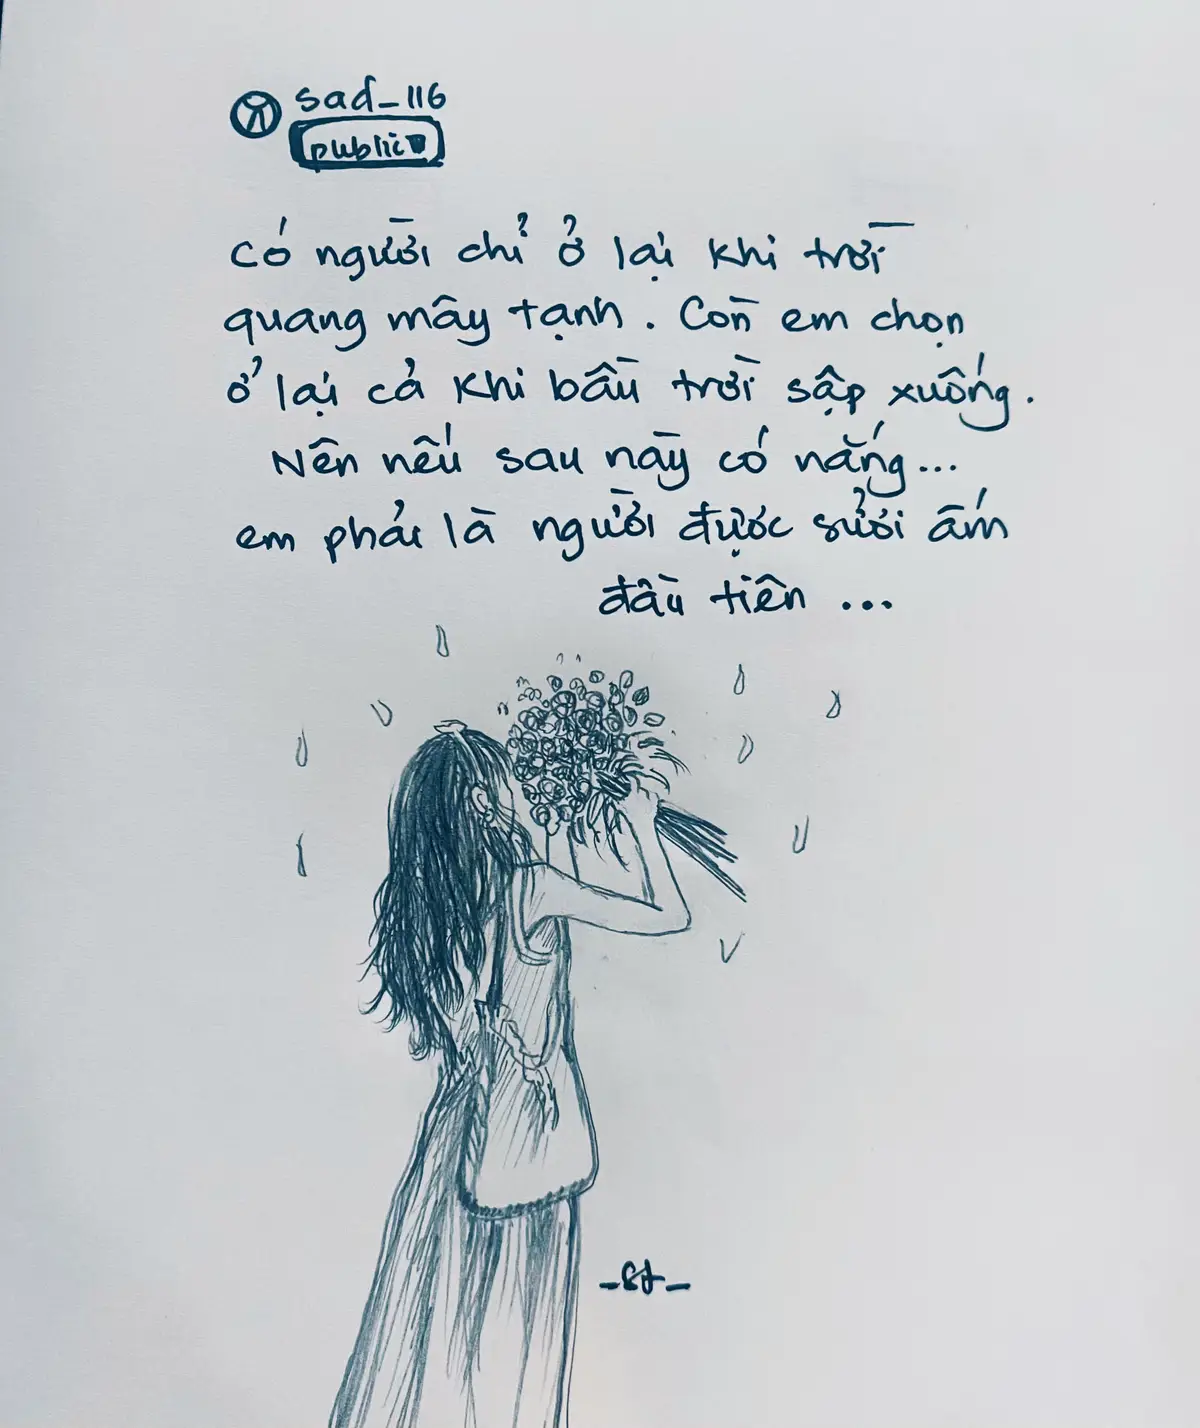 sad_116
public
Có người chỉ ở lại khi trời
quang mây tạnh. Còn em chọn
ở lại cả khi bầu trời sập xuống.
Nên nếu sau này có nắng...
em phải là người được sưởi ấm
đầu tiên ...